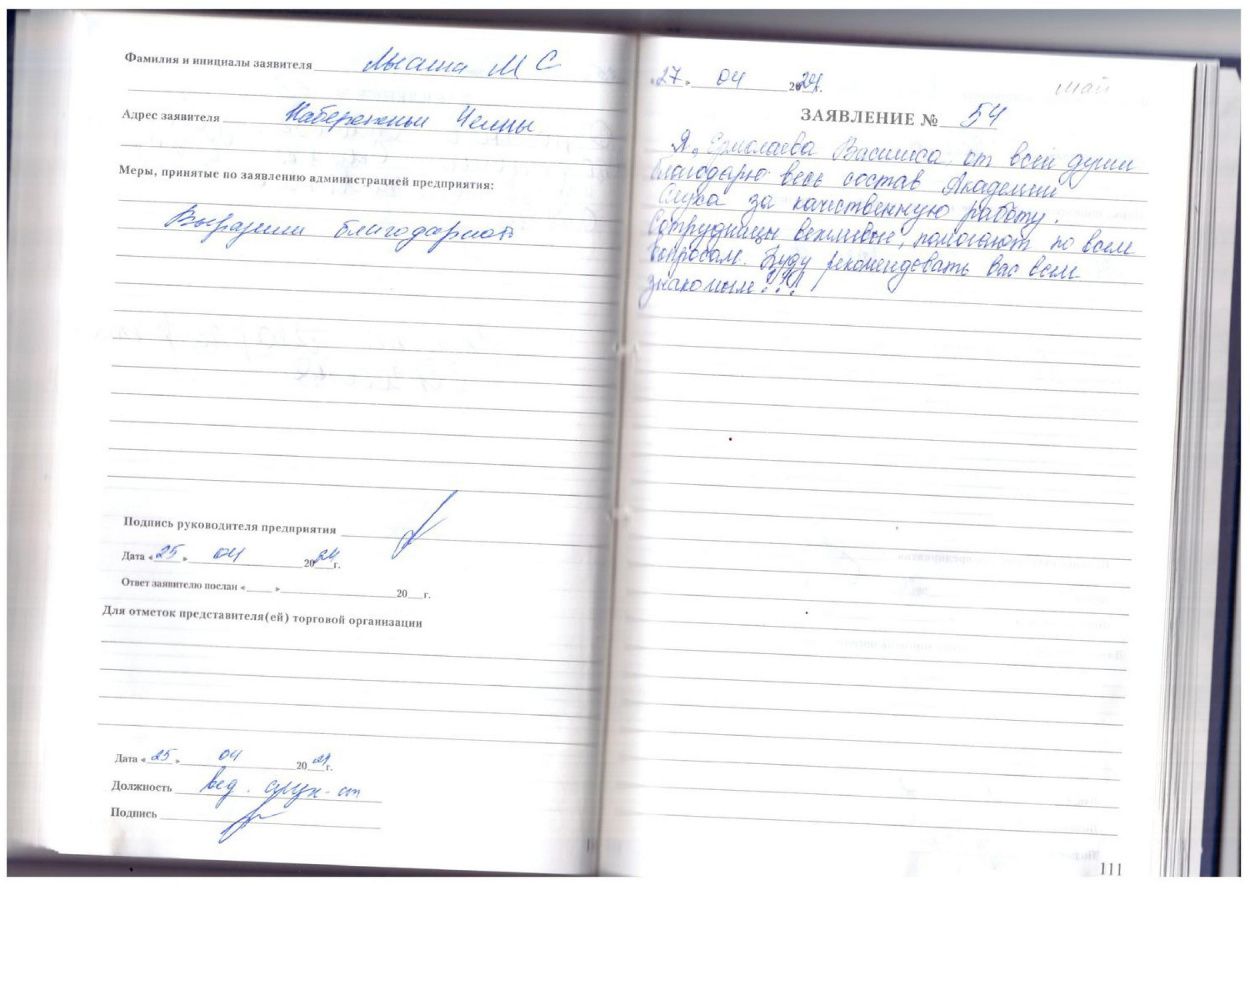 Фамилия и инициалы заявителя М С
Адрес заявителя Набережные Челны
Меры, принятые по заявлению администрацией предприятия:
Выразили благодарность
Подпись руководителя предприятия
Дата «25» 04 2024г.
Ответ заявителю послан «___» 20__г.
Для отметок представителя(ей) торговой организации
Дата «25» 04 2024г.
Должность вед.
Подпись
«27» 04 2024г.
май
ЗАЯВЛЕНИЕ № 54
Я, Ермолаева Василиса от всей души
благодарю весь состав Академии
Слуха за качественную работу.
Сотрудницы вежливые, помогают по всем
вопросам. Буду рекомендовать вас всем
знакомым!!!
111